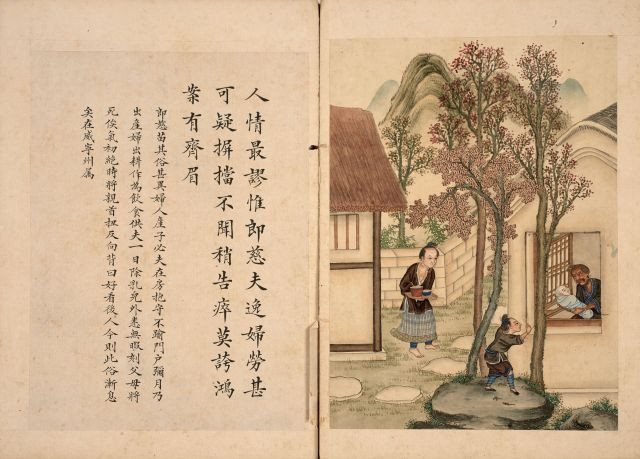 人情最謬惟郎慈夫逸婦勞甚
可疑摒擋不閒稍告瘁莫誇鴻
案有齊眉
郎慈苗其俗甚異婦人産子必夫在房抱守不踰門戶彌月乃
出産婦出耕作為飲食供夫一日除乳兒外悉無暇刻父母將
死俟氣初絶時將親首扭反向背曰好看後人今則此俗漸息
矣在威寧州属